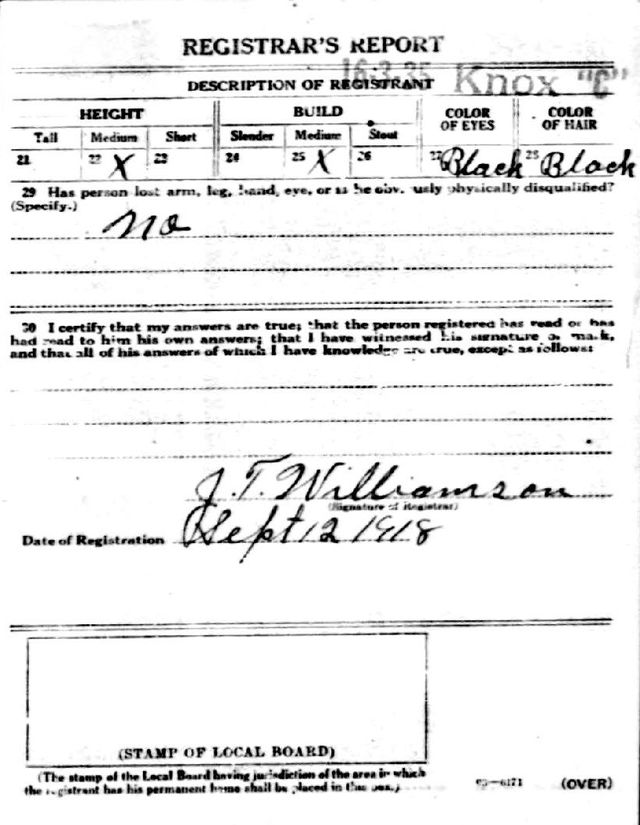 REGISTRAR'S REPORT
16-3-35 Knox "C"
DESCRIPTION OF REGISTRANT
HEIGHT BUILD COLOR OF EYES COLOR OF HAIR
Tall Medium Short Slender Medium Stout
21 22 X 23 24 25 X 26 27 Black 28 Black
29 Has person lost arm, leg, hand, eye, or is he obviously physically disqualified?
(Specify.)
No
30 I certify that my answers are true; that the person registered has read or has
had read to him his own answers; that I have witnessed his signature or mark,
and that all of his answers of which I have knowledge are true, except as follows:
J. T. Williamson
(Signature of Registrar)
Date of Registration Sept 12 1918
(STAMP OF LOCAL BOARD)
(The stamp of the Local Board having jurisdiction of the area in which
the registrant has his permanent home shall be placed in this box.)
03—6171 (OVER)